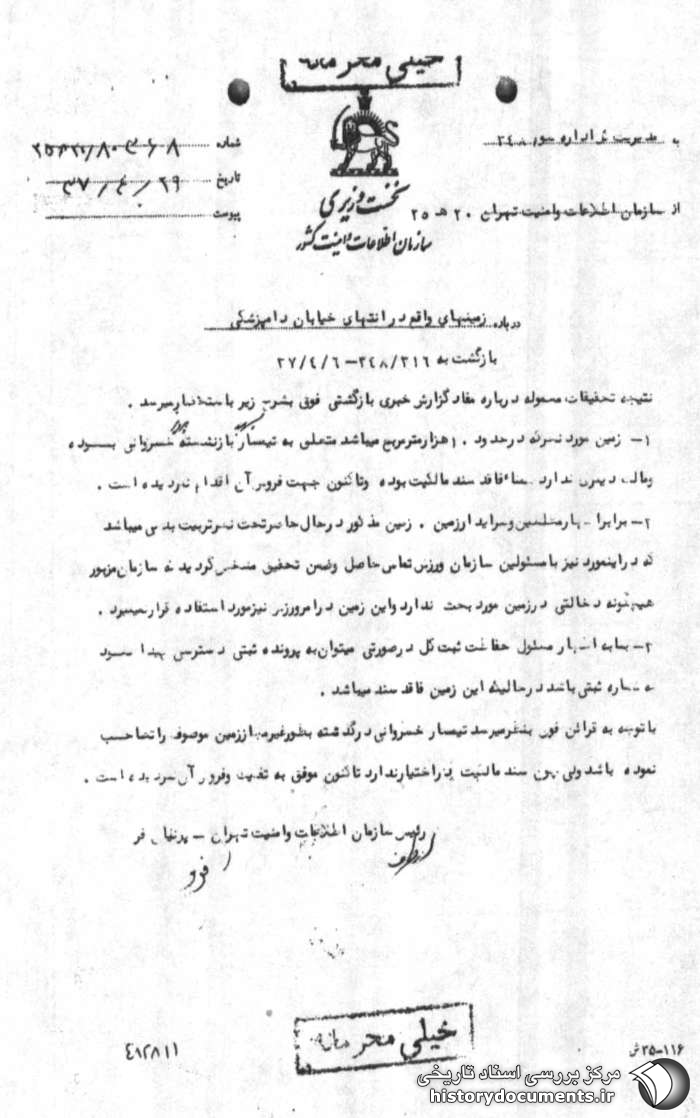 خیلی محرمانه
به مدیریت کل اداره سوم ۳۴۸
شماره
تاریخ ۳۷/۴/۲۹
پیوست
از سازمان اطلاعات وامنیت تهران ۲۰ هـ ۲۵
نخست وزیری
سازمان اطلاعات و امنیت کشور
درباره زمینهای واقع در انتهای خیابان دامپزشکی
بازگشت به ۳۴۸/۲۱۶ – ۳۷/۴/۶
نتیجه تحقیقات معموله درباره مفاد گزارش خبری بازگشتی فوق بشرح زیر باستحضار میرسد .
۱– زمین مورد نظر که در حدود ۱۰ هزار مترمربع میباشد متعلق به تیمسار بازنشسته خسروانی بوده
ومالک دیگری ندارد ضمناً فاقد سند مالکیت بوده وتاکنون جهت فروش آن اقدام نگردیده است .
۲– برابر اظهار مطلعین زمین مذکور در حال حاضر تحت نظر تربیت بدنی میباشد
که در اینمورد نیز با مسئولین سازمان ورزش تماس حاصل وضمن تحقیق مشخص گردید که سازمان مزبور
هیچگونه دخالتی در زمین مورد بحث ندارد واین زمین در امر ورزش نیز مورد استفاده قرار نمیگیرد .
۳– بنا به اظهار مسئول حفاظت ثبت کل در صورتی میتوان به پرونده ثبتی دسترسی پیدا نمود
که شماره ثبتی باشد در حالیکه این زمین فاقد سند میباشد .
با توجه به قرائن فوق بنظر میرسد تیمسار خسروانی در گذشته بطور غیر مجاز زمین موصوف را تصاحب
نموده باشد ولی چون سند مالکیت در اختیار ندارد تاکنون موفق به تفکیک وفروش آن نگردیده است .
رئیس سازمان اطلاعات وامنیت تهران – پرنیان فر
خیلی محرمانه
۴۱۲۸۱۱
۳۵–۱۱۶ ش
مرکز بررسی اسناد تاریخی
historydocuments.ir